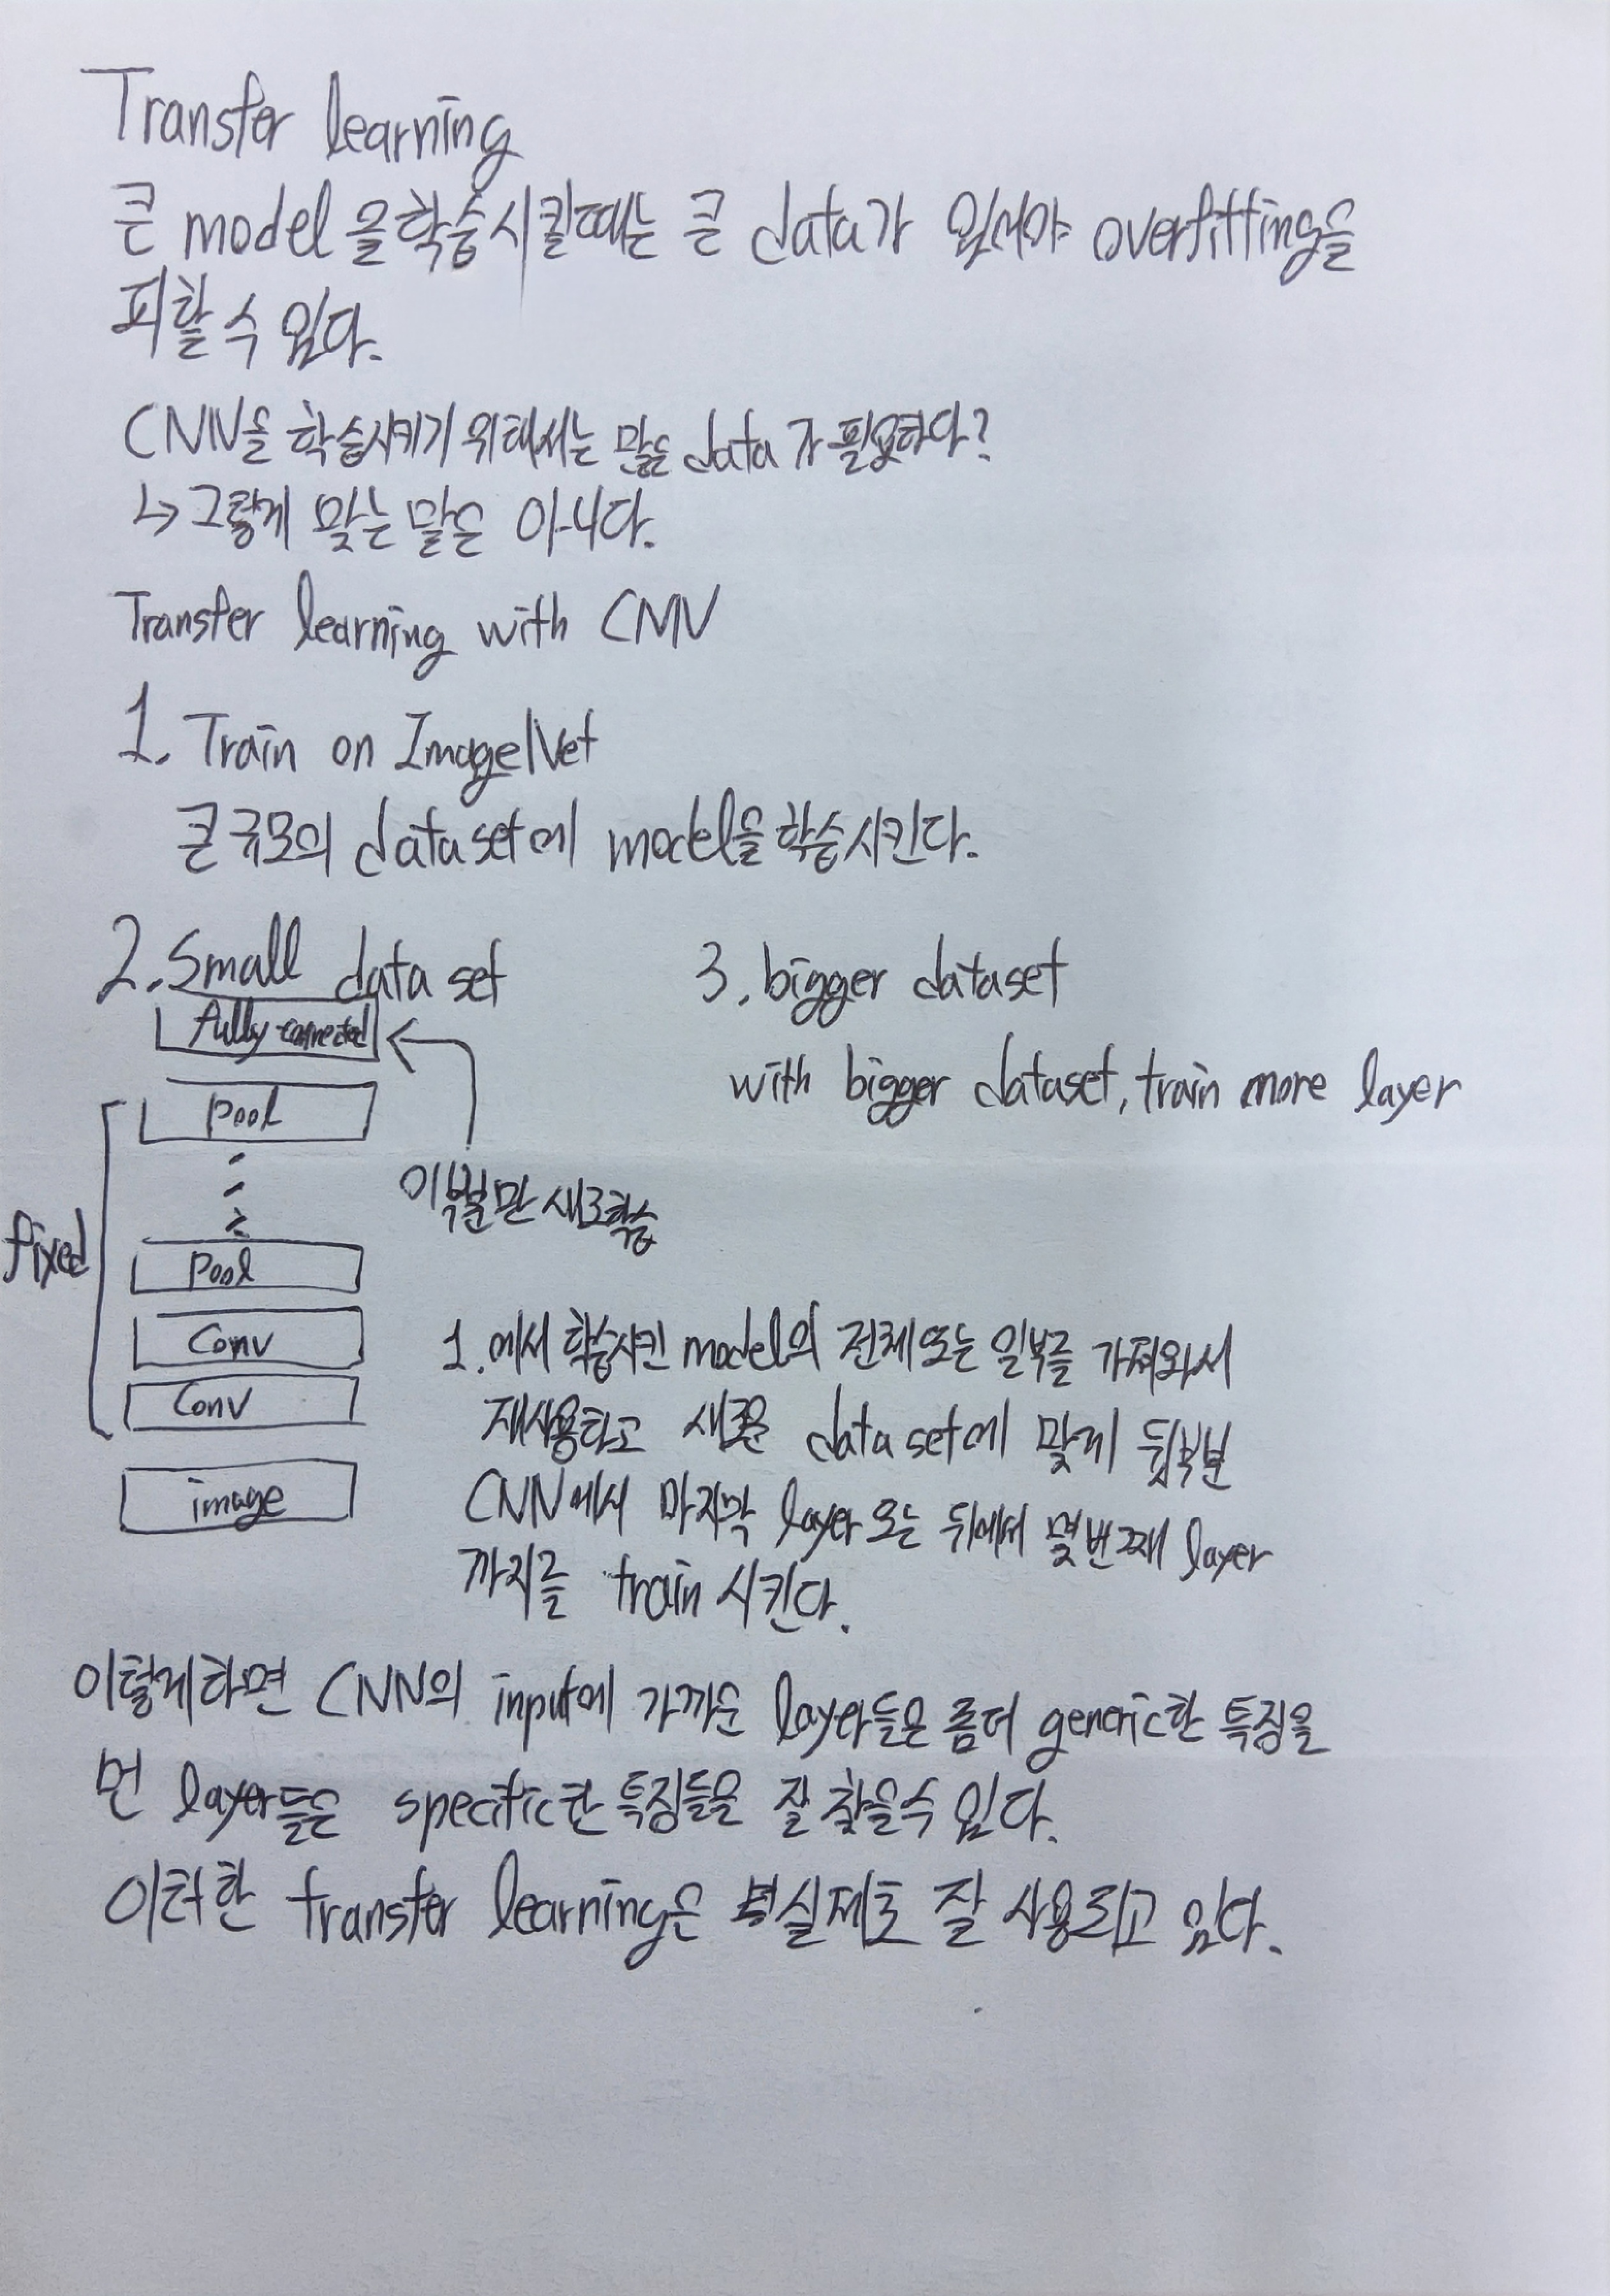 Transfer learning
큰 model을 학습시킬때는 큰 data가 있어야 overfitting을
피할 수 있다.
CNN을 학습시키기 위해서는 많은 data가 필요하다?
↳ 그렇게 맞는 말은 아니다.
Transfer learning with CNN
1. Train on ImageNet
큰 규모의 dataset에 model을 학습시킨다.
2. Small data set
fully connected
pool
이부분만 새로학습
fixed
pool
Conv
Conv
image
3. bigger dataset
with bigger dataset, train more layer
1.에서 학습시킨 model의 전체또는 일부를 가져와서
재사용하고 새로운 dataset에 맞게 뒷부분
CNN에서 마지막 layer 또는 뒤에서 몇번째 layer
까지를 train 시킨다.
이렇게하면 CNN의 input에 가까운 layer들은 좀더 generic한 특징을
먼 layer들은 specific한 특징들을 잘 찾을수 있다.
이러한 transfer learning은 실제로 잘 사용되고 있다.